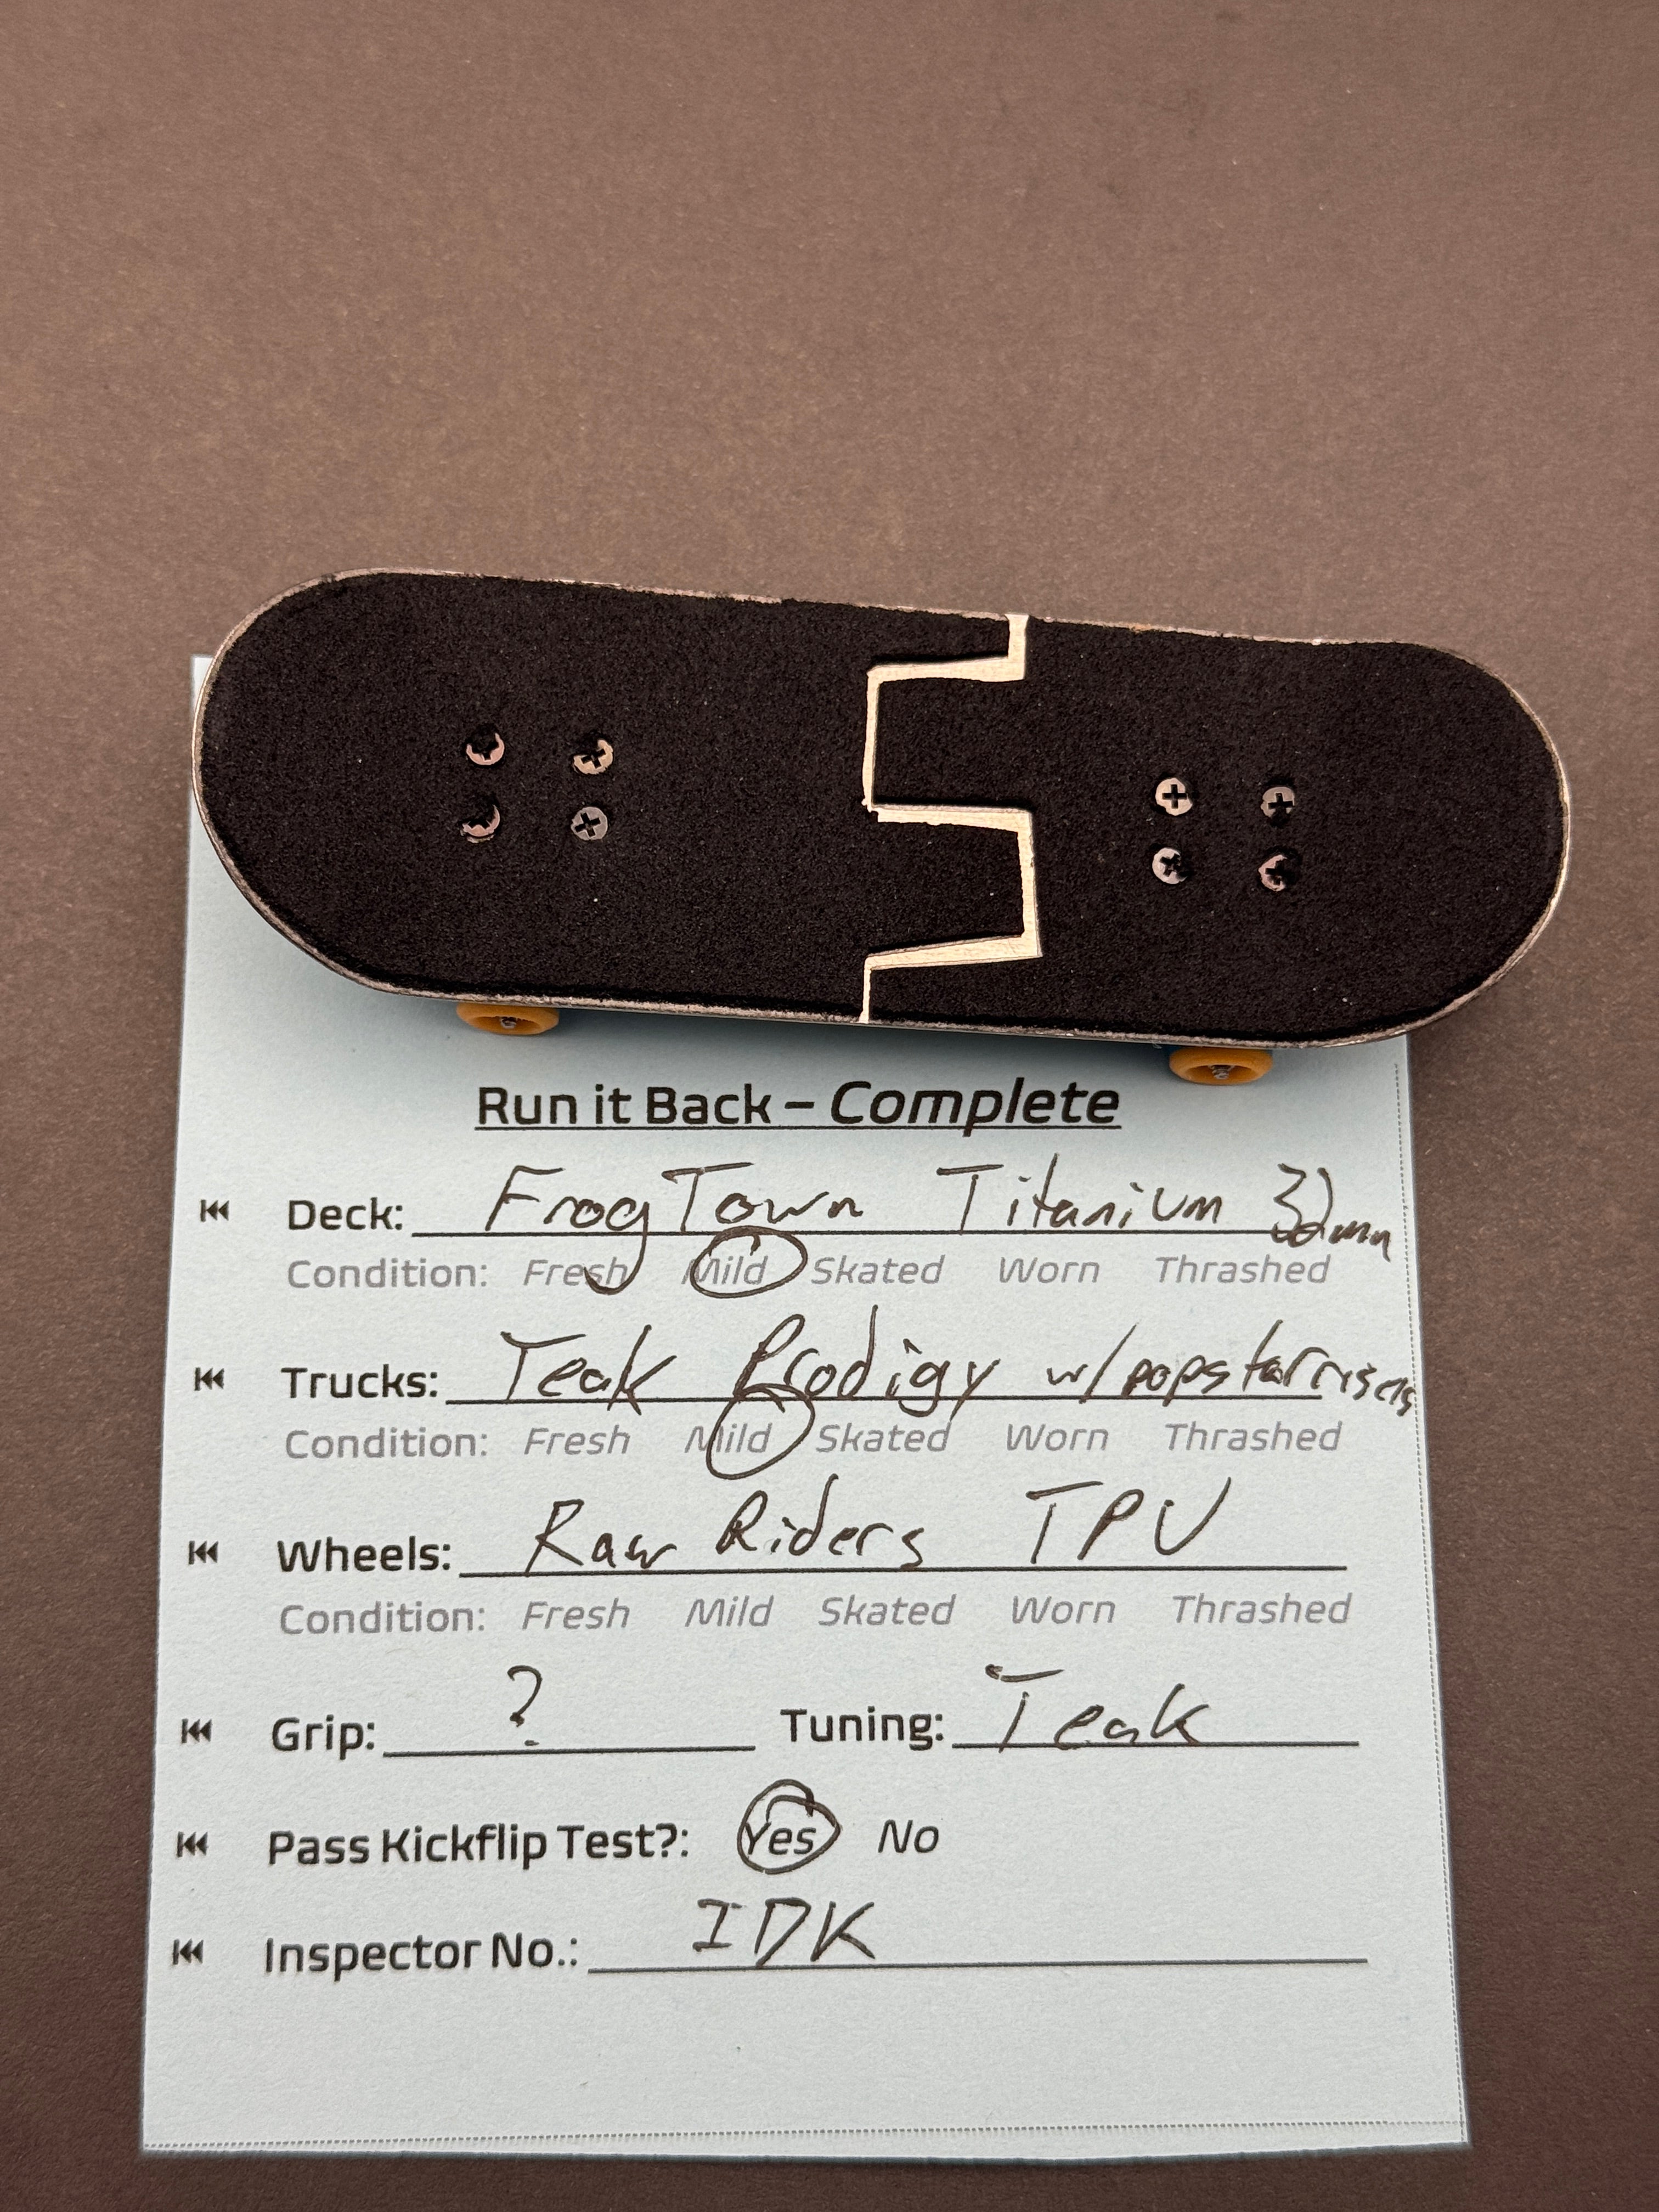 Run it Back – Complete
Deck: FrogTown Titanium 32mm
Condition: Fresh Mild Skated Worn Thrashed
Trucks: Teak Prodigy w/ popstar risers
Condition: Fresh Mild Skated Worn Thrashed
Wheels: Raw Riders TPU
Condition: Fresh Mild Skated Worn Thrashed
Grip: ? Tuning: Teak
Pass Kickflip Test?: Yes No
Inspector No.: IDK